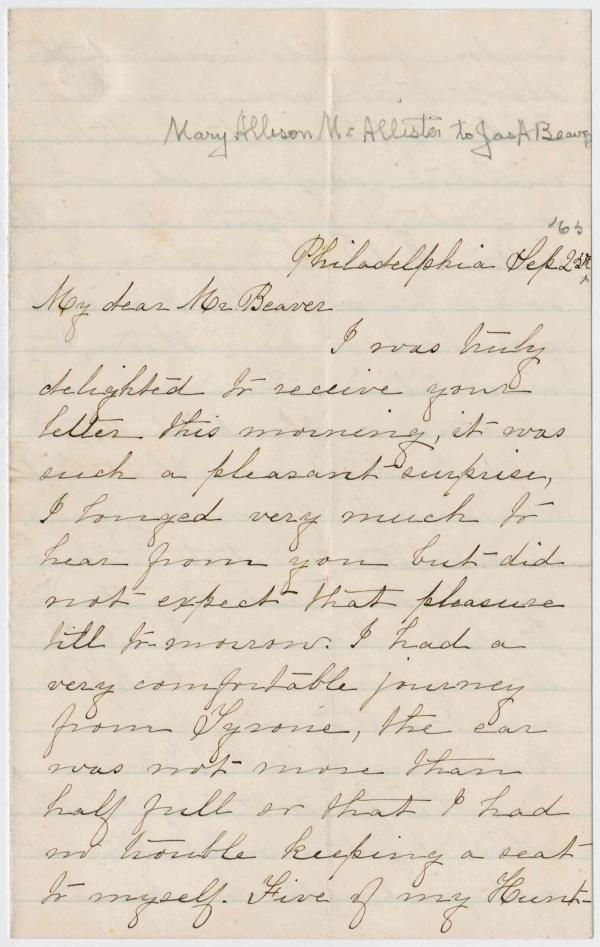 Mary Allison McAllister to Jas A Beaver
'65
Philadelphia Sep 25th
My dear Mr. Beaver
I was truly
delighted to receive your
letter this morning, it was
such a pleasant surprise,
I longed very much to
hear from you but did
not expect that pleasure
till to-morrow. I had a
very comfortable journey
from Tyrone, the car
was not more than
half full so that I had
no trouble keeping a seat
to myself. Five of my Hunt-